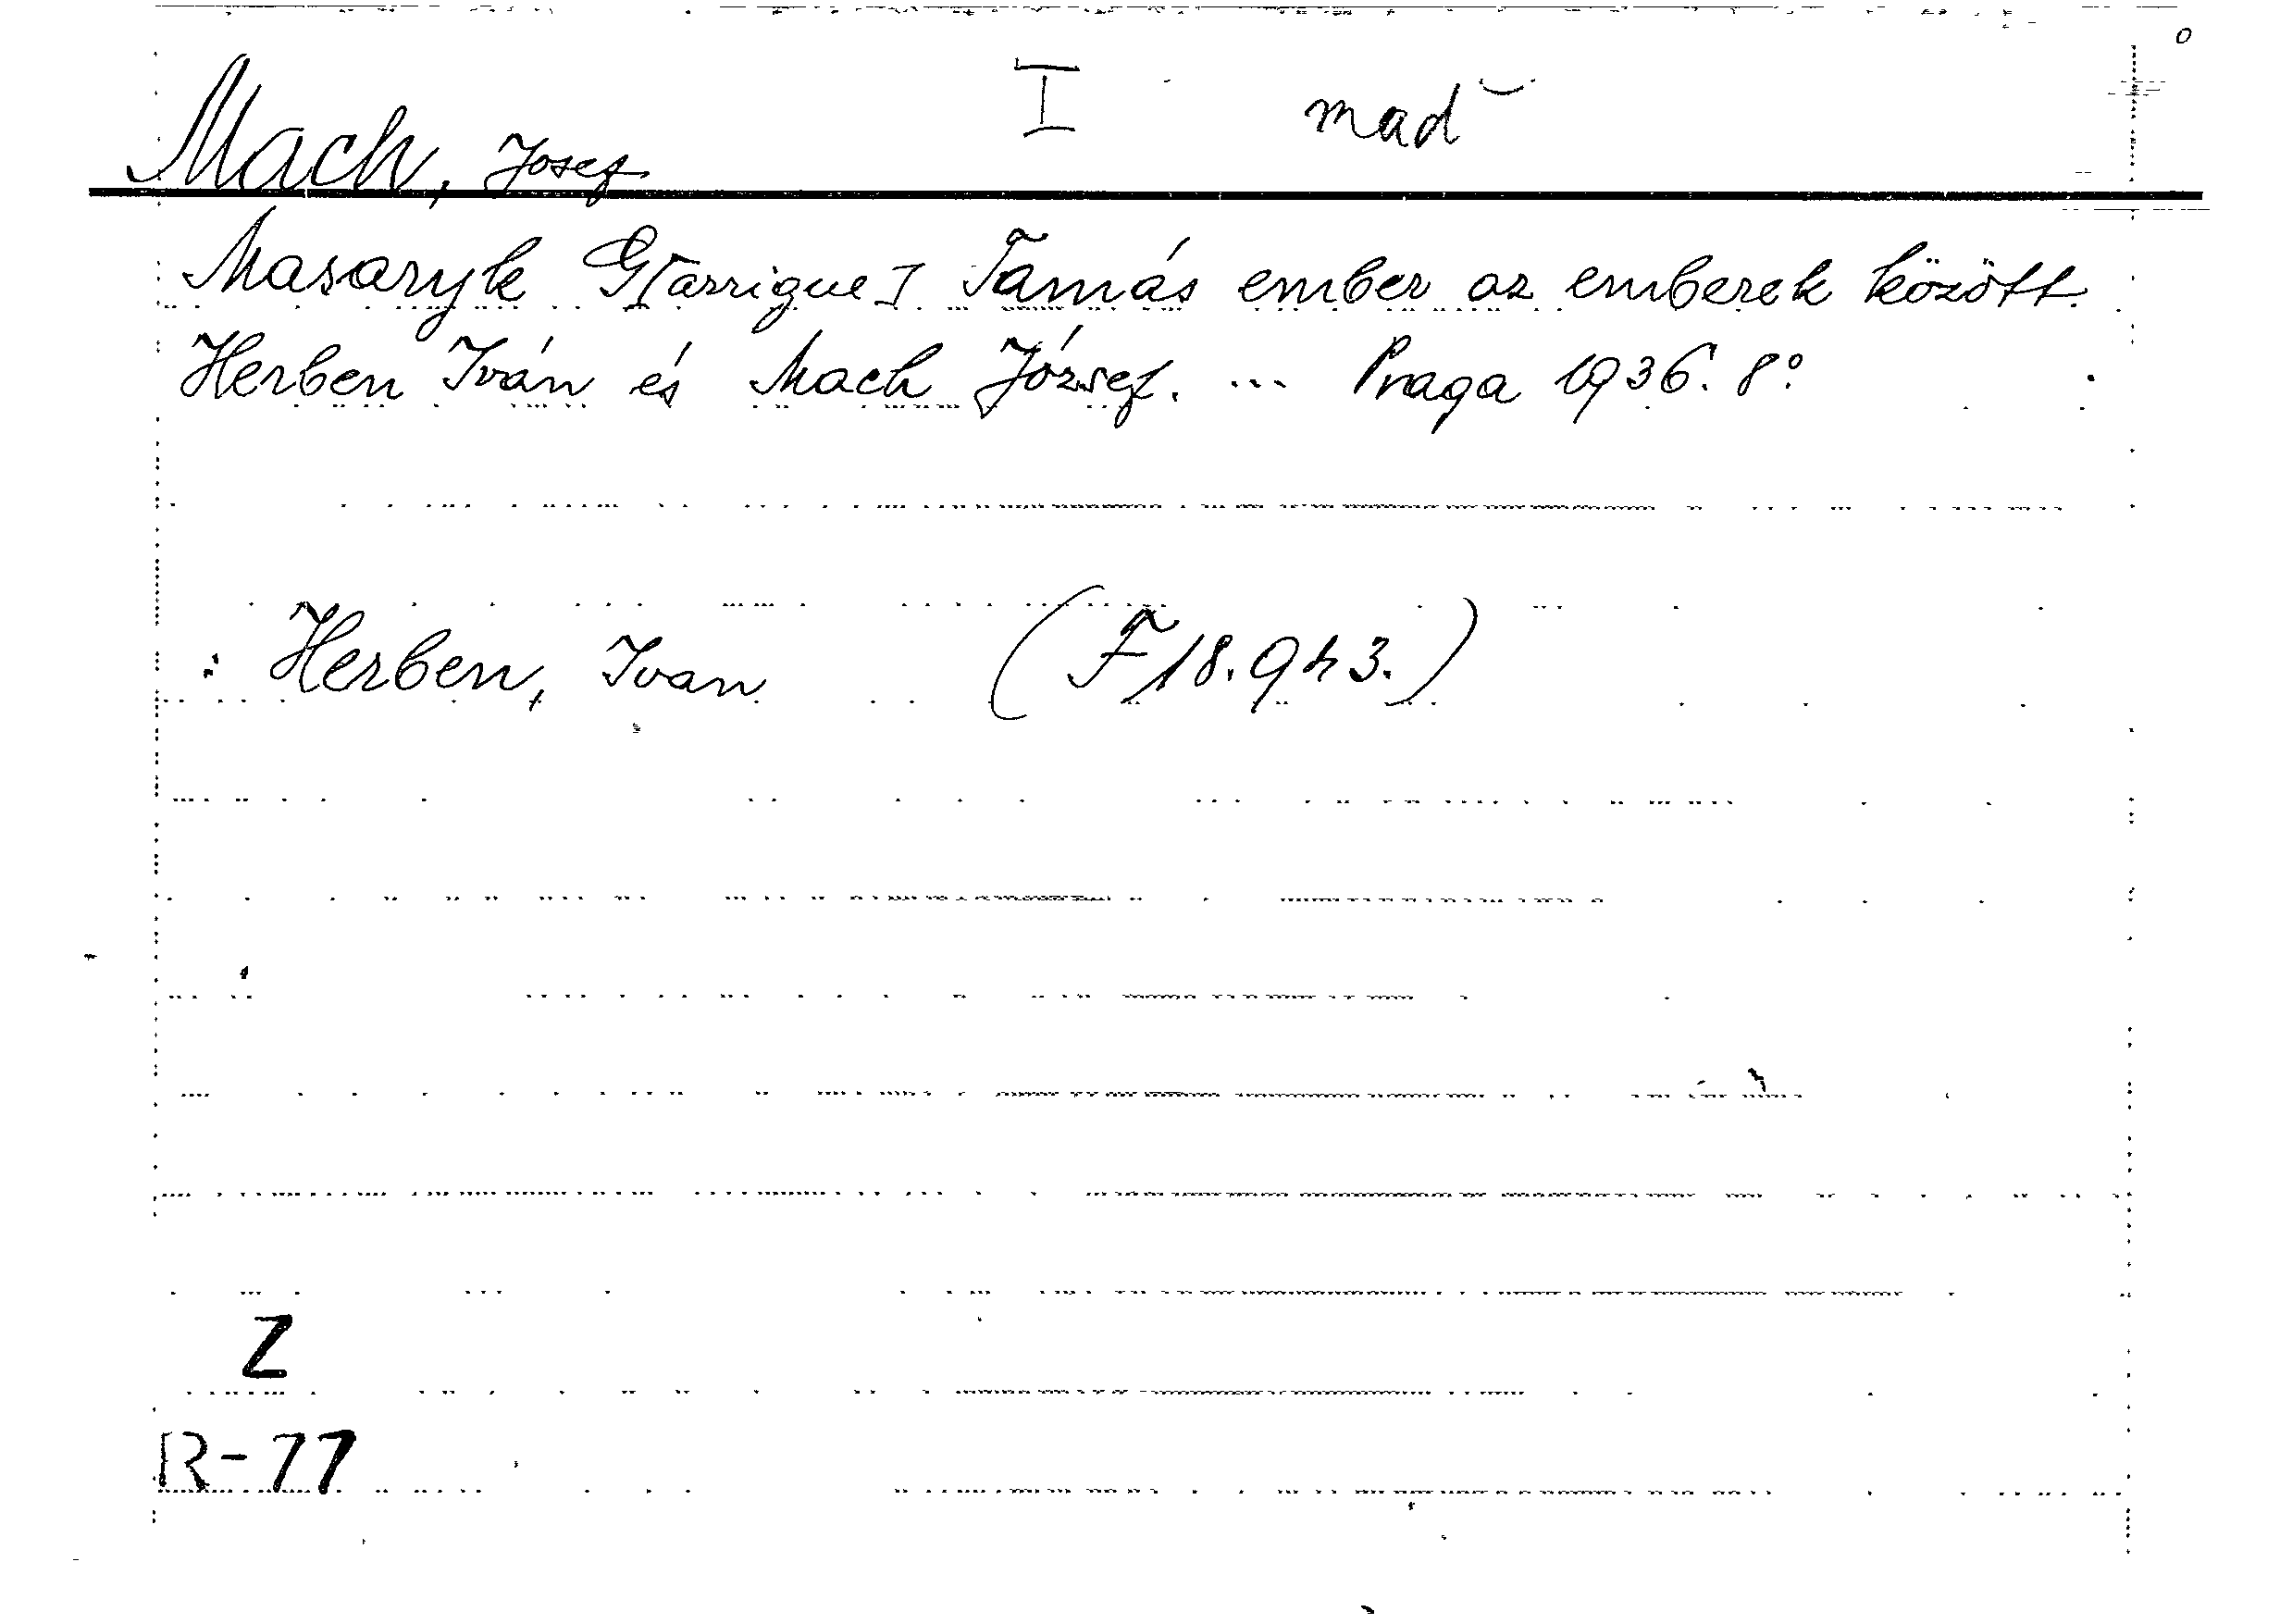 Mach, Josef I maď
Masaryk G[arrigue] Tamás ember az emberek között.
Herben Iván és Mach József. ... Praga 1936. 8°
: Herben, Ivan (F 18.943.)
Z
R-77